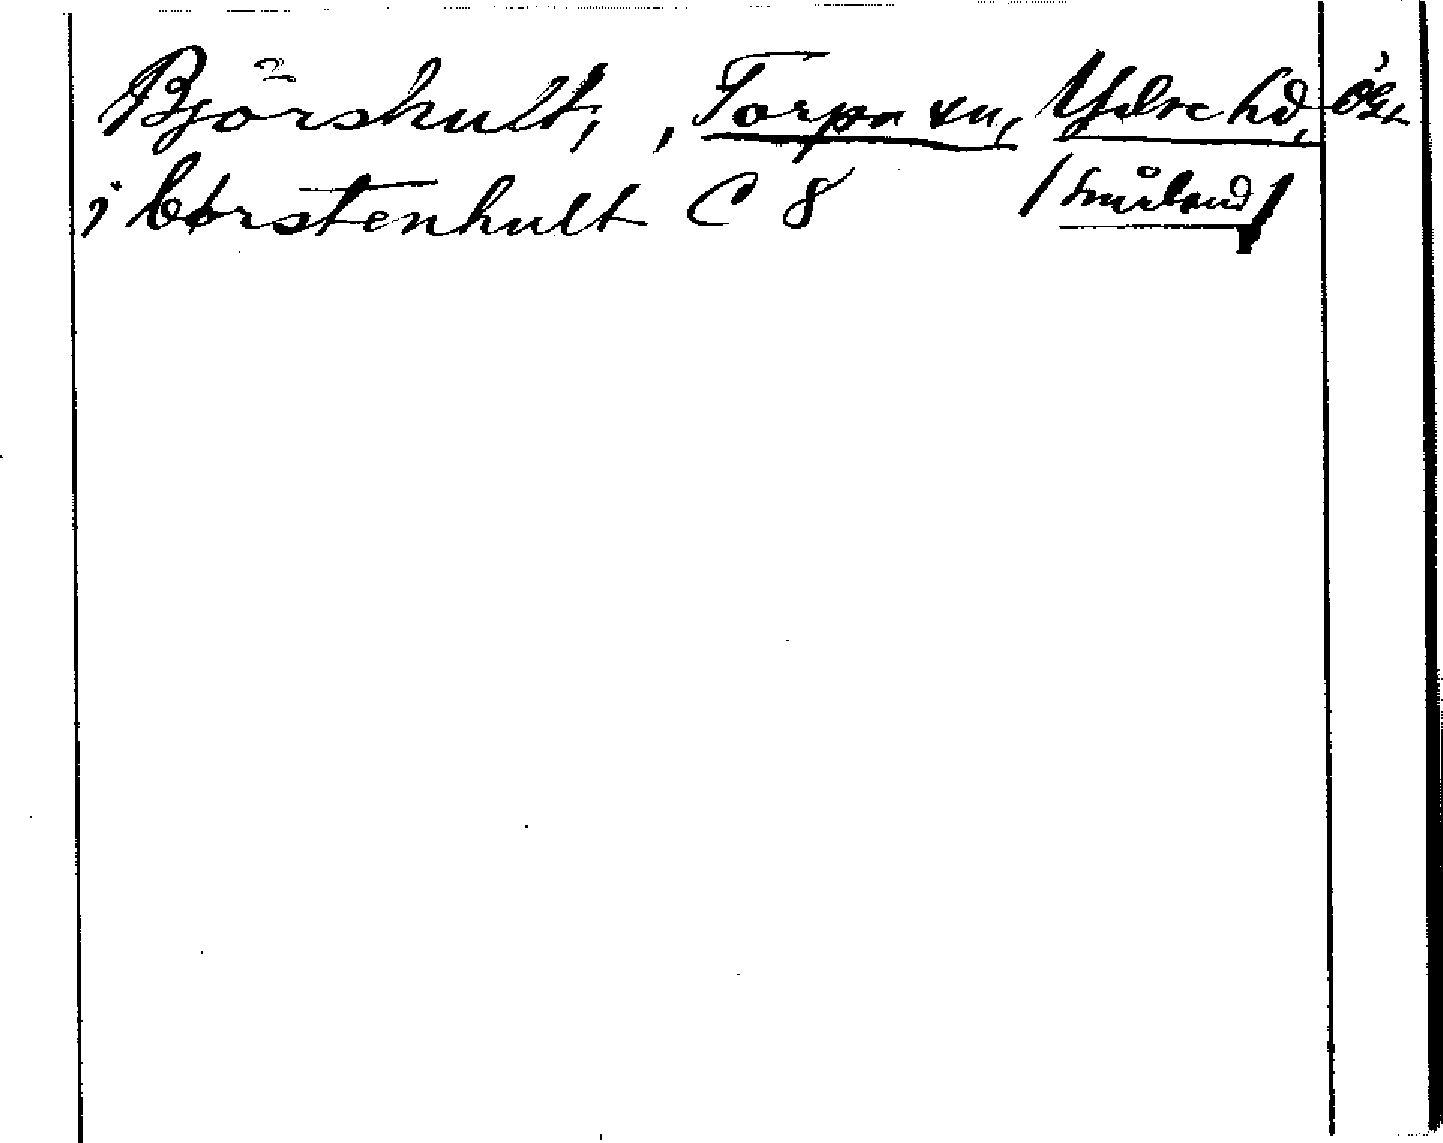 Björshult, , Torpa sn, Ydre hd, Ög.
i Corstenhult C 8 /Småland/